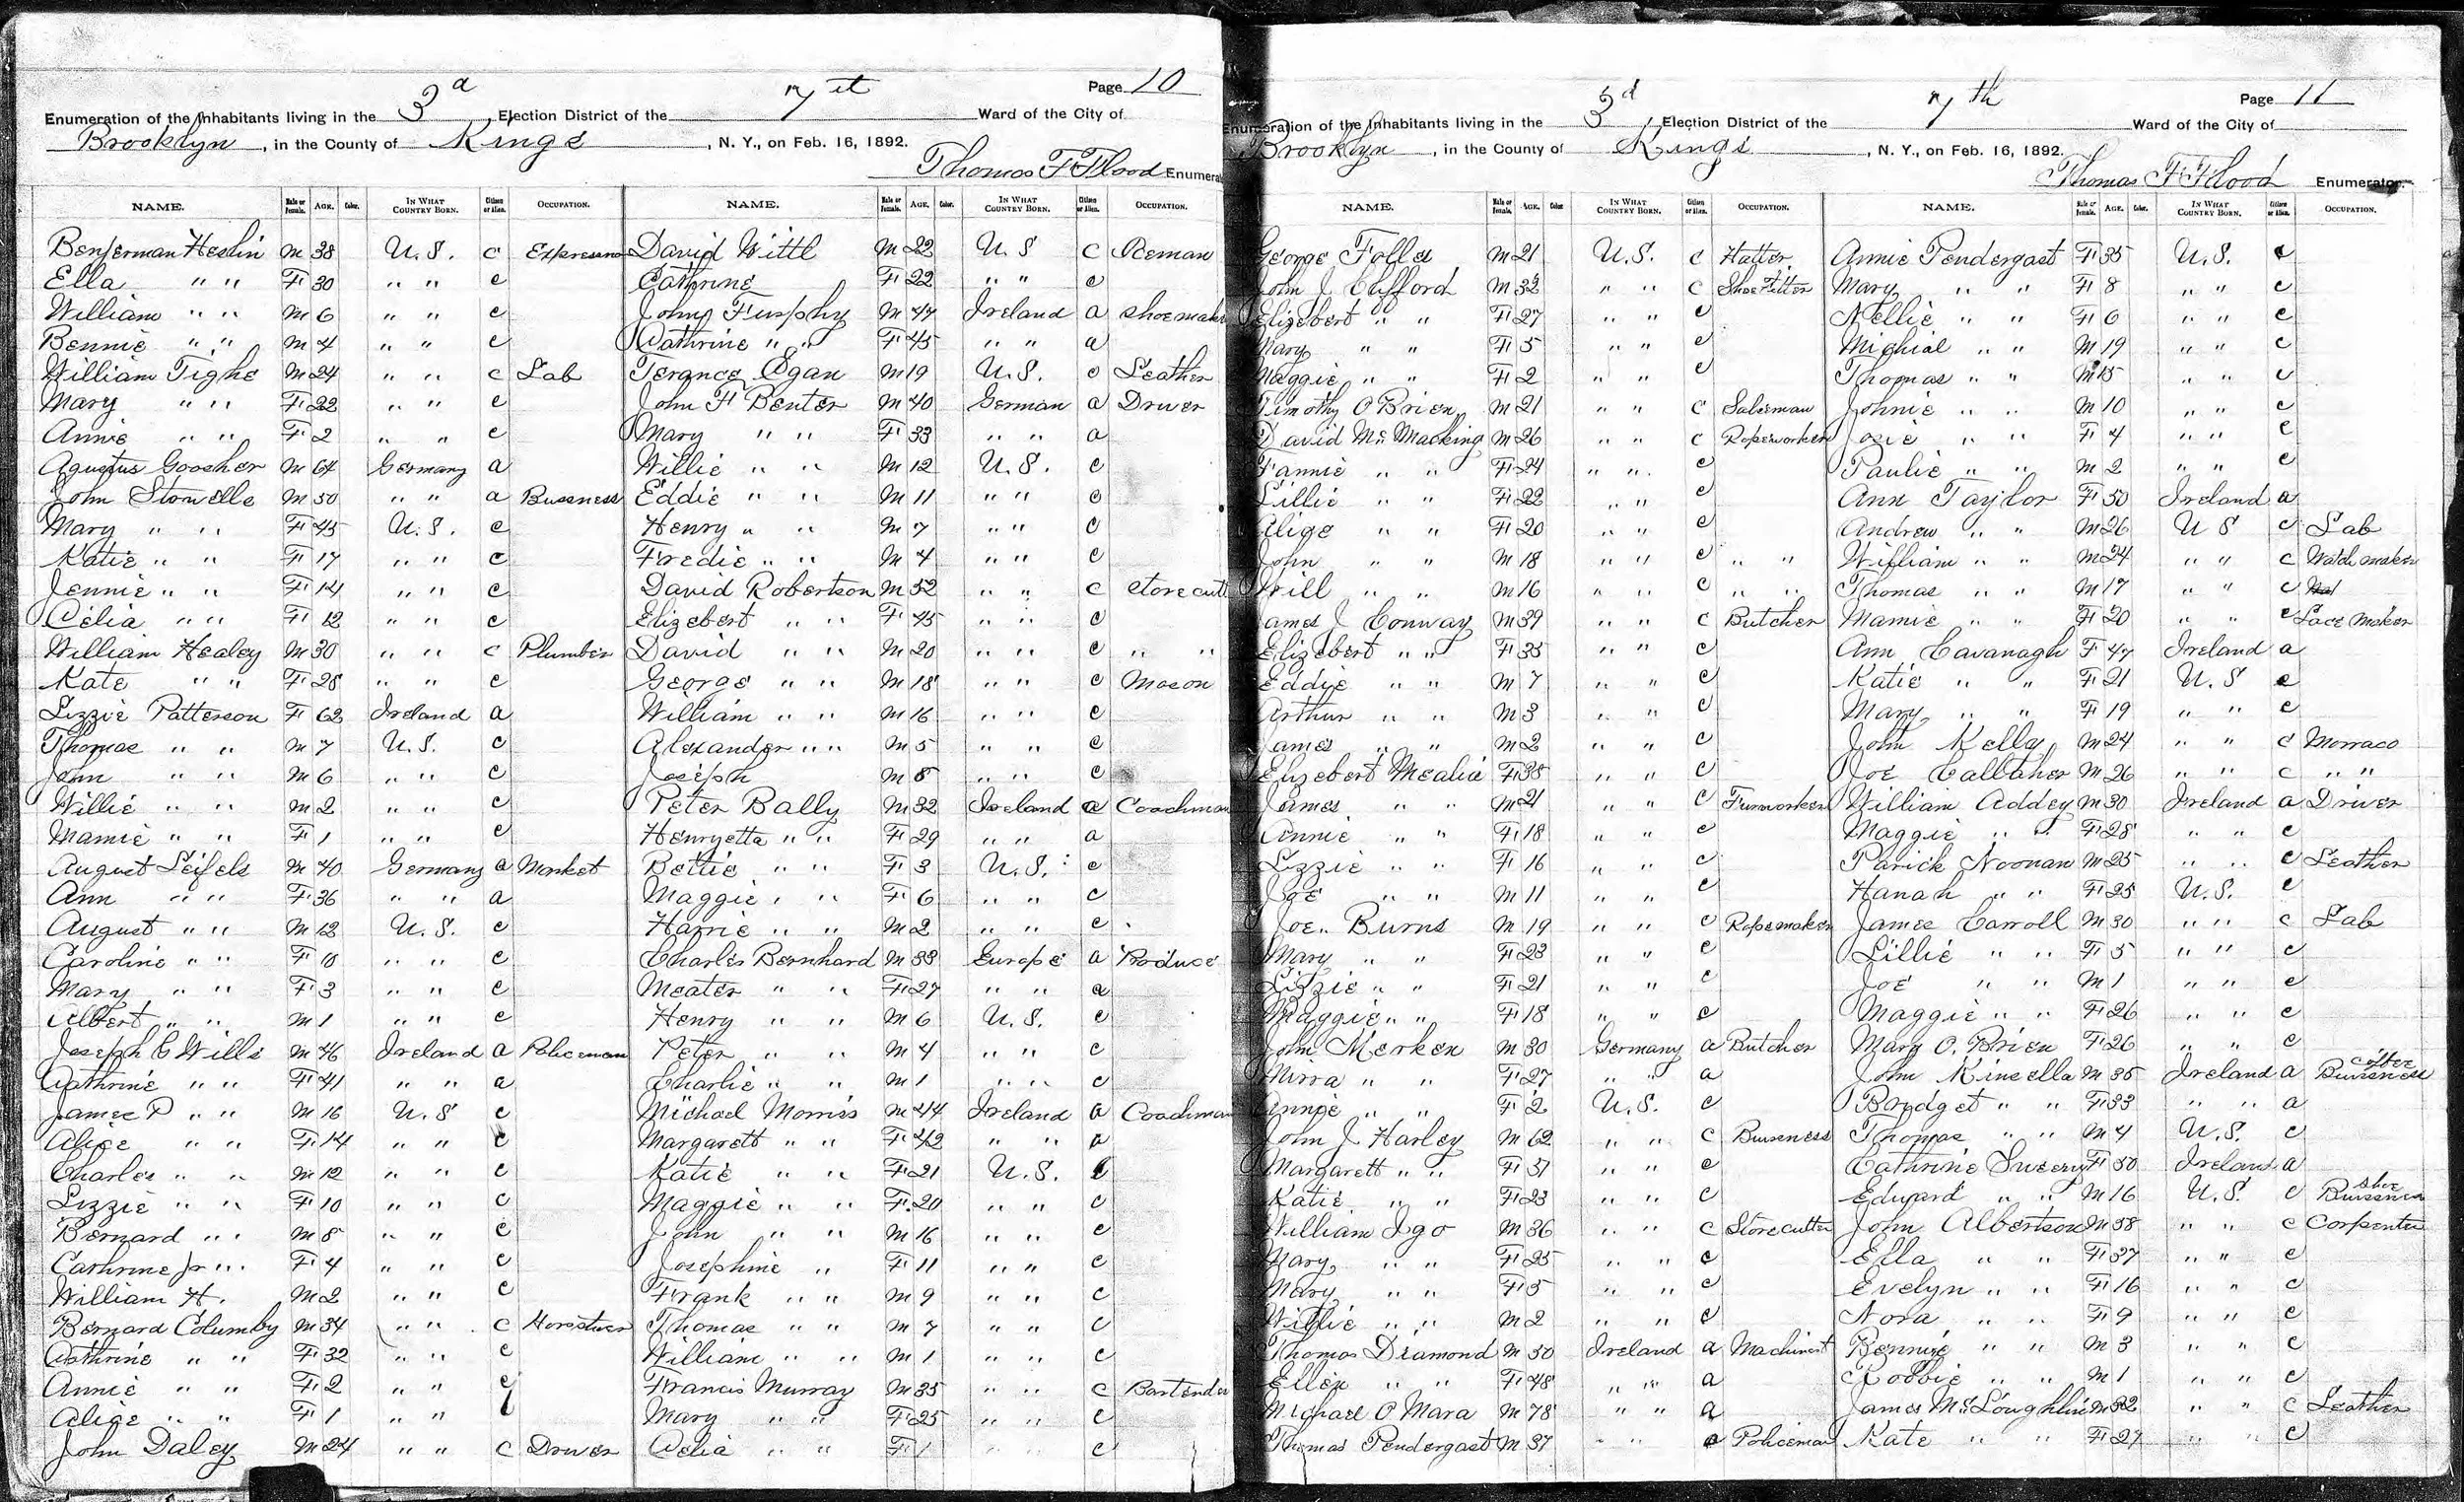 Page 10
Enumeration of the Inhabitants living in the 3d Election District of the 7th Ward of the City of
Brooklyn, in the County of Kings, N. Y., on Feb. 16, 1892.
Thomas F Flood Enumera
NAME. Male or Female. AGE. Color. IN WHAT COUNTRY BORN. Citizen or Alien. OCCUPATION.
Benjerman Heslin M 38 U.S. c Expressm
Ella " " F 30 " " c
William " " M 6 " " c
Bennie " " M 4 " " c
William Tighe M 24 " " c Lab
Mary " " F 22 " " c
Annie " " F 2 " " c
Agustus Goosher M 64 Germany a
John Stowells M 50 " " a Bussness
Mary " " F 45 U.S. c
Katie " " F 17 " " c
Jennie " " F 14 " " c
Celia " " F 12 " " c
William Healey M 30 " " c Plumber
Kate " " F 28 " " c
Lizzie Patterson F 62 Ireland a
Thomas " " M 7 U.S. c
John " " M 6 " " c
Willie " " M 2 " " c
Mamie " " F 1 " " c
August Leifels M 40 Germany a Market
Ann " " F 36 " " a
August " " M 12 U.S. c
Caroline " " F 10 " " c
Mary " " F 3 " " c
Albert " " M 1 " " c
Joseph C Wills M 46 Ireland a Policeman
Cathrine " " F 41 " " a
James P " " M 16 U.S c
Alice " " F 14 " " c
Charles " " M 12 " " c
Lizzie " " F 10 " " c
Bernard " " M 8 " " c
Cathrine Jr " " F 4 " " c
William H. M 2 " " c
Bernard Columby M 34 " " c
Cathrine " " F 32 " " c
Annie " " F 2 " " c
Alice " " F 1 " "
John Daley M 24 " " c Driver
NAME. Male or Female. AGE. Color. IN WHAT COUNTRY BORN. Citizen or Alien. OCCUPATION.
David Wittl M 22 U.S c Iceman
Cathrine F 22 " " c
John Furphy M 47 Ireland a Shoemake
Cathrine " " F 45 " " a
Terance Egan M 19 U.S. c Leather
John F Benter M 40 German a Driver
Mary " " F 33 " " a
Willie " " M 12 U.S. c
Eddie " " M 11 " " c
Henry " " M 7 " " c
Fredie " " M 4 " " c
David Robertson M 52 " " c Stonecutt
Elizebert " " F 45 " " c
David " " M 20 " " c " "
George " " M 18 " " c Mason
William " " M 16 " " c
Alexander " " M 5 " " c
Joseph M 8 " " c
Peter Bally M 32 Ireland a Coachman
Henryetta " " F 29 " " a
Bettie " " F 3 U.S. c
Maggie " " F 6 " " c
Harrie " " M 2 " " c
Charles Bernhard M 33 Europe a Produce
Meater " " F 27 " " a
Henry " " M 6 U.S. c
Peter " " M 4 " " c
Charlie " " M 1 " " c
Michael Morris M 44 Ireland a Coachman
Margarett " " F 42 " " a
Katie " " F 21 U.S. c
Maggie " " F 20 " " c
John " " M 16 " " c
Josephine " F 11 " " c
Frank " " M 9 " " c
Thomas " " M 7 " " c
William " " M 1 " " c
Francis Murray M 35 " " c Bartender
Mary " " F 25 " " c
Celia " " F 1 " " c
Page 11
Enumeration of the Inhabitants living in the 3d Election District of the 7th Ward of the City of
Brooklyn, in the County of Kings, N. Y., on Feb. 16, 1892.
Thomas F Flood Enumerator.
NAME. Male or Female. AGE. Color IN WHAT COUNTRY BORN. Citizen or Alien. OCCUPATION.
George Folles M 21 U.S. c Hatter
John J Clifford M 32 " " c Shoe Fitter
Elizebert " " F 27 " " c
Mary " " F 5 " " c
Maggie " " F 2 " " c
Timothy O Brien M 21 " " c Salesman
David Mc Macking M 26 " " c Ropeworker
Fannie " " F 24 " " c
Lillie " " F 22 " " c
Alice " " F 20 " " c
John " " M 18 " " c " "
Will " " M 16 " " c " "
James J Conway M 39 " " c Butcher
Elizebert " " F 35 " " c
Eddie " " M 7 " " c
Arthur " " M 3 " " c
James " " M 2 " " c
Elizebert Mealia F 38 " " c
James " " M 21 " " c Furrworker
Annie " " F 18 " " c
Lizzie " " F 16 " " c
Joe " " M 11 " " c
Joe Burns M 19 " " c Ropemaker
Mary " " F 23 " " c
Lizzie " " F 21 " " c
Maggie " " F 18 " " c
John Merken M 30 Germany a Butcher
Mirra " " F 27 " " a
Annie " " F 2 U.S. c
John J Harley M 62 " " c Bussness
Margarett " " F 51 " " c
Katie " " F 23 " " c
William Igo M 36 " " c Stonecutter
Mary " " F 25 " " c
Mary " " F 5 " " c
Willie " " M 2 " " c
Thomas Diamond M 50 Ireland a Machinist
Ellen " " F 48 " " a
Michael O Mara M 78 " " a
Thomas Pendergast M 37 " " c Policeman
NAME. Male or Female. AGE. Color. IN WHAT COUNTRY BORN. Citizen or Alien. OCCUPATION.
Annie Pendergast F 35 U.S. c
Mary " " F 8 " " c
Nellie " " F 6 " " c
Michial " " M 19 " " c
Thomas " " M 15 " " c
Johnie " " M 10 " " c
Josie " " F 4 " " c
Paulie " " M 2 " " c
Ann Taylor F 50 Ireland a
Andrew " " M 26 U S c Lab
William " " M 24 " " c Watch maker
Thomas " " M 17 " " c
Mamie " " F 20 " " c Lace Maker
Ann Cavanagh F 47 Ireland a
Katie " " F 21 U.S c
Mary " " F 19 " " c
John Kelly M 24 " " c Morraco
Joe Callaher M 26 " " c " "
William Addey M 30 Ireland a Driver
Maggie " " F 28 " " c
Parick Noonan M 25 " " c Leather
Hanah " " F 25 U.S. c
James Carroll M 30 " " c Lab
Lillie " " F 5 " " c
Joe " " M 1 " " c
Maggie " " F 26 " " c
Mary O. Brien F 26 " " c
John Kinsella M 35 Ireland a Coffee Bussness
Bridget " " F 33 " " a
Thomas " " M 4 U.S. c
Cathrine Sweeny F 50 Ireland a
Edward " " M 16 U.S. c Shoe Bussness
John Albertson M 38 " " c Carpenter
Ella " " F 37 " " c
Evelyn " " F 16 " " c
Nora " " F 9 " " c
Bennie " " M 3 " " c
Robbie " " M 1 " " c
James McLoughlin M 32 " " c Leather
Kate " " F 27 " " c